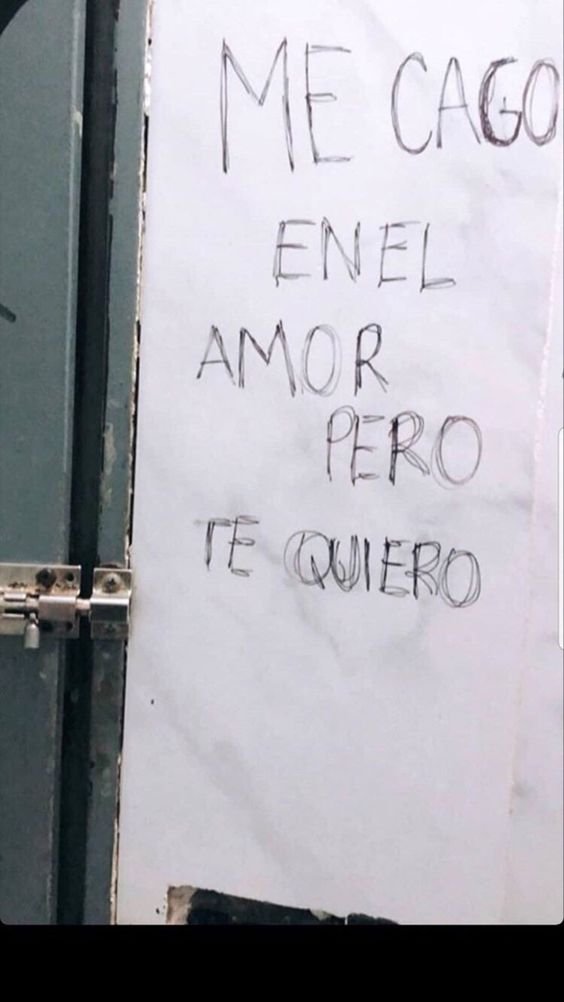 ME CAGO
EN EL
AMOR
PERO
TE QUIERO